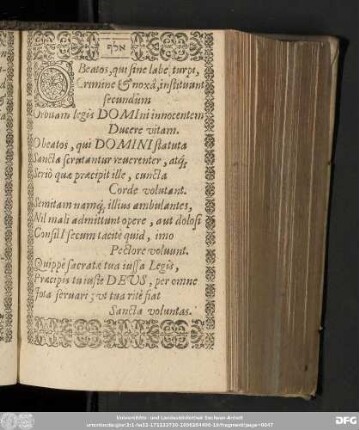 אלף
O Beatos, qui sine labe, turpi,
Crimine & noxâ, instituunt
secundum
Normam legis DOMIni innocentem
Ducere vitam.
O beatos, qui DOMINI statuta
Sancta scrutantur reuerenter, atq́;
Seriò quæ præcipit ille, cuncta
Corde volutant.
Semitam namq́; illius ambulantes,
Nil mali admittunt opere, aut dolosi
ConsilI secum tacitè quid, imo
Pectore voluunt.
Quippè sacratæ tua iussa Legis,
Præcipis tu iustè DEUS, per omne
Iota seruari; vt tua ritè fiat
Sancta voluntas.
Universitäts- und Landesbibliothek Sachsen-Anhalt
DFG